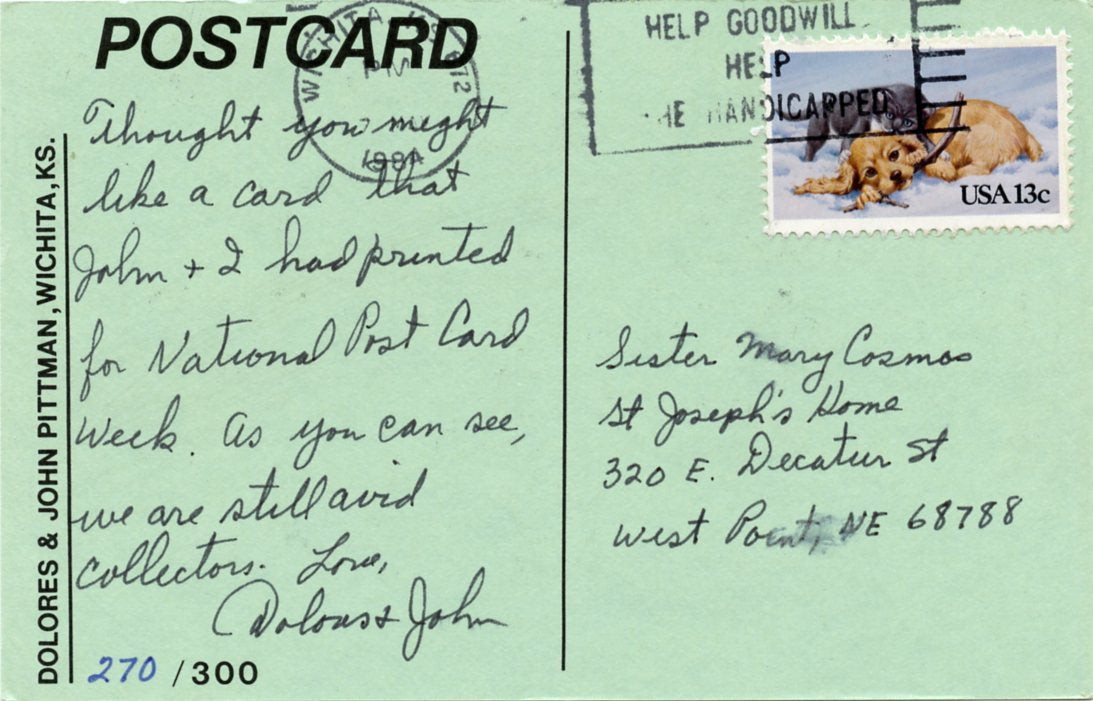 POSTCARD
WICHITA, KS 672
PM
HELP GOODWILL
HELP
THE HANDICAPPED
USA 13c
Thought you might
like a card that
John + I had printed
for National Post Card
Week. As you can see,
we are still avid
collectors. Love,
Dolores + John
270 / 300
DOLORES & JOHN PITTMAN, WICHITA, KS.
Sister Mary Cosmas
St Joseph's Home
320 E. Decatur St
West Point, NE 68788